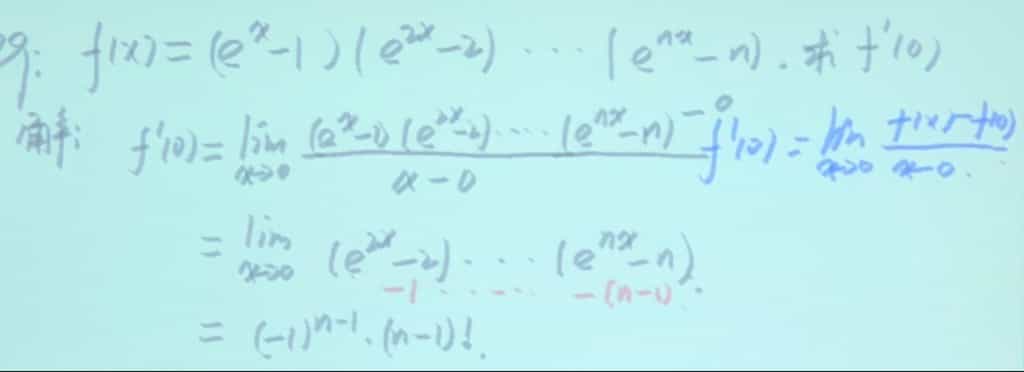 9: f(x) = (e^x - 1)(e^{2x} - 2) ···· (e^{nx} - n). 求 f'(0)
解: f'(0) = lim_{x→0} \frac{(e^x - 1)(e^{2x} - 2)····(e^{nx} - n) - 0}{x - 0} f'(0) = lim_{x→0} \frac{f(x) - f(0)}{x - 0}.
= lim_{x→0} (e^{2x} - 2) ···· (e^{nx} - n).
-1 ····· -(n-1)
= (-1)^{n-1} · (n-1)!.